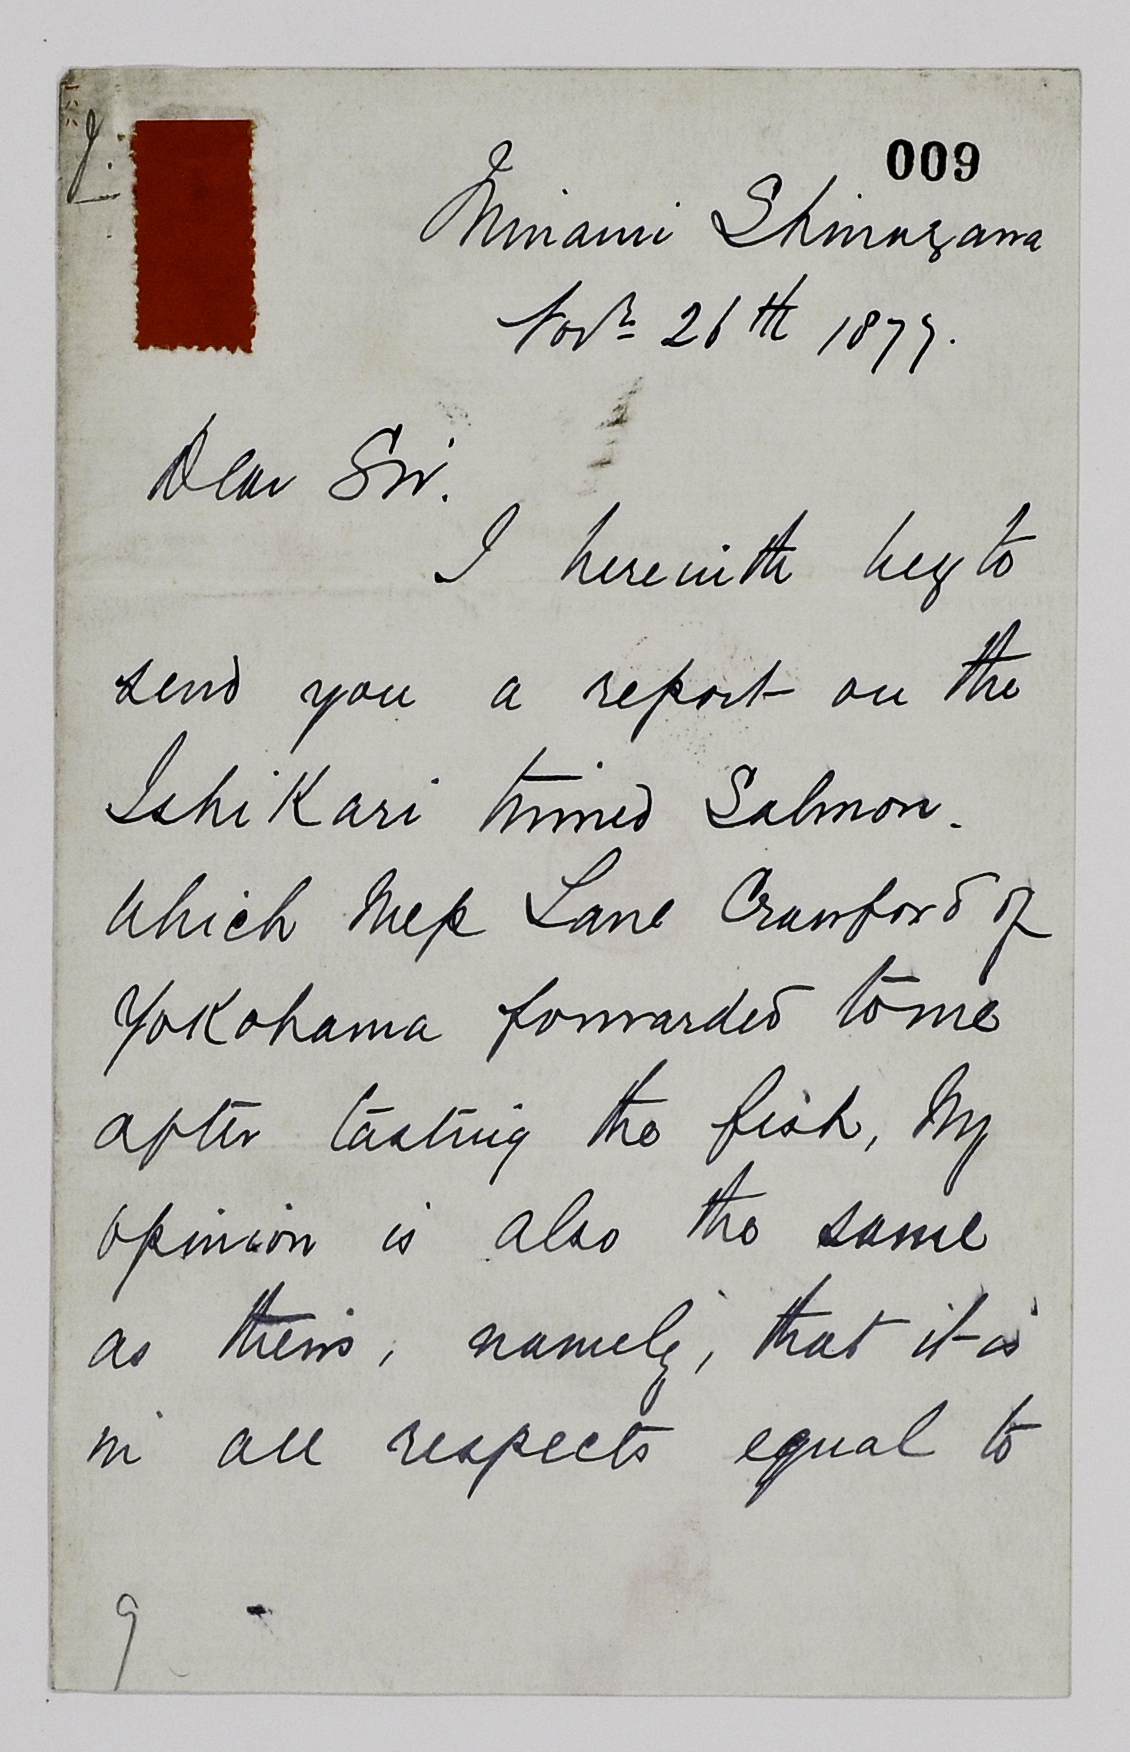 J.
009
Minami Shinagawa
Novr 26th 1877.
Dear Sir.
I herewith beg to
send you a report on the
Ishikari tinned Salmon.
Which Mess Lane Crawford of
Yokohama forwarded to me
after tasting the fish, My
opinion is also the same
as theirs, namely, that it is
in all respects equal to
9